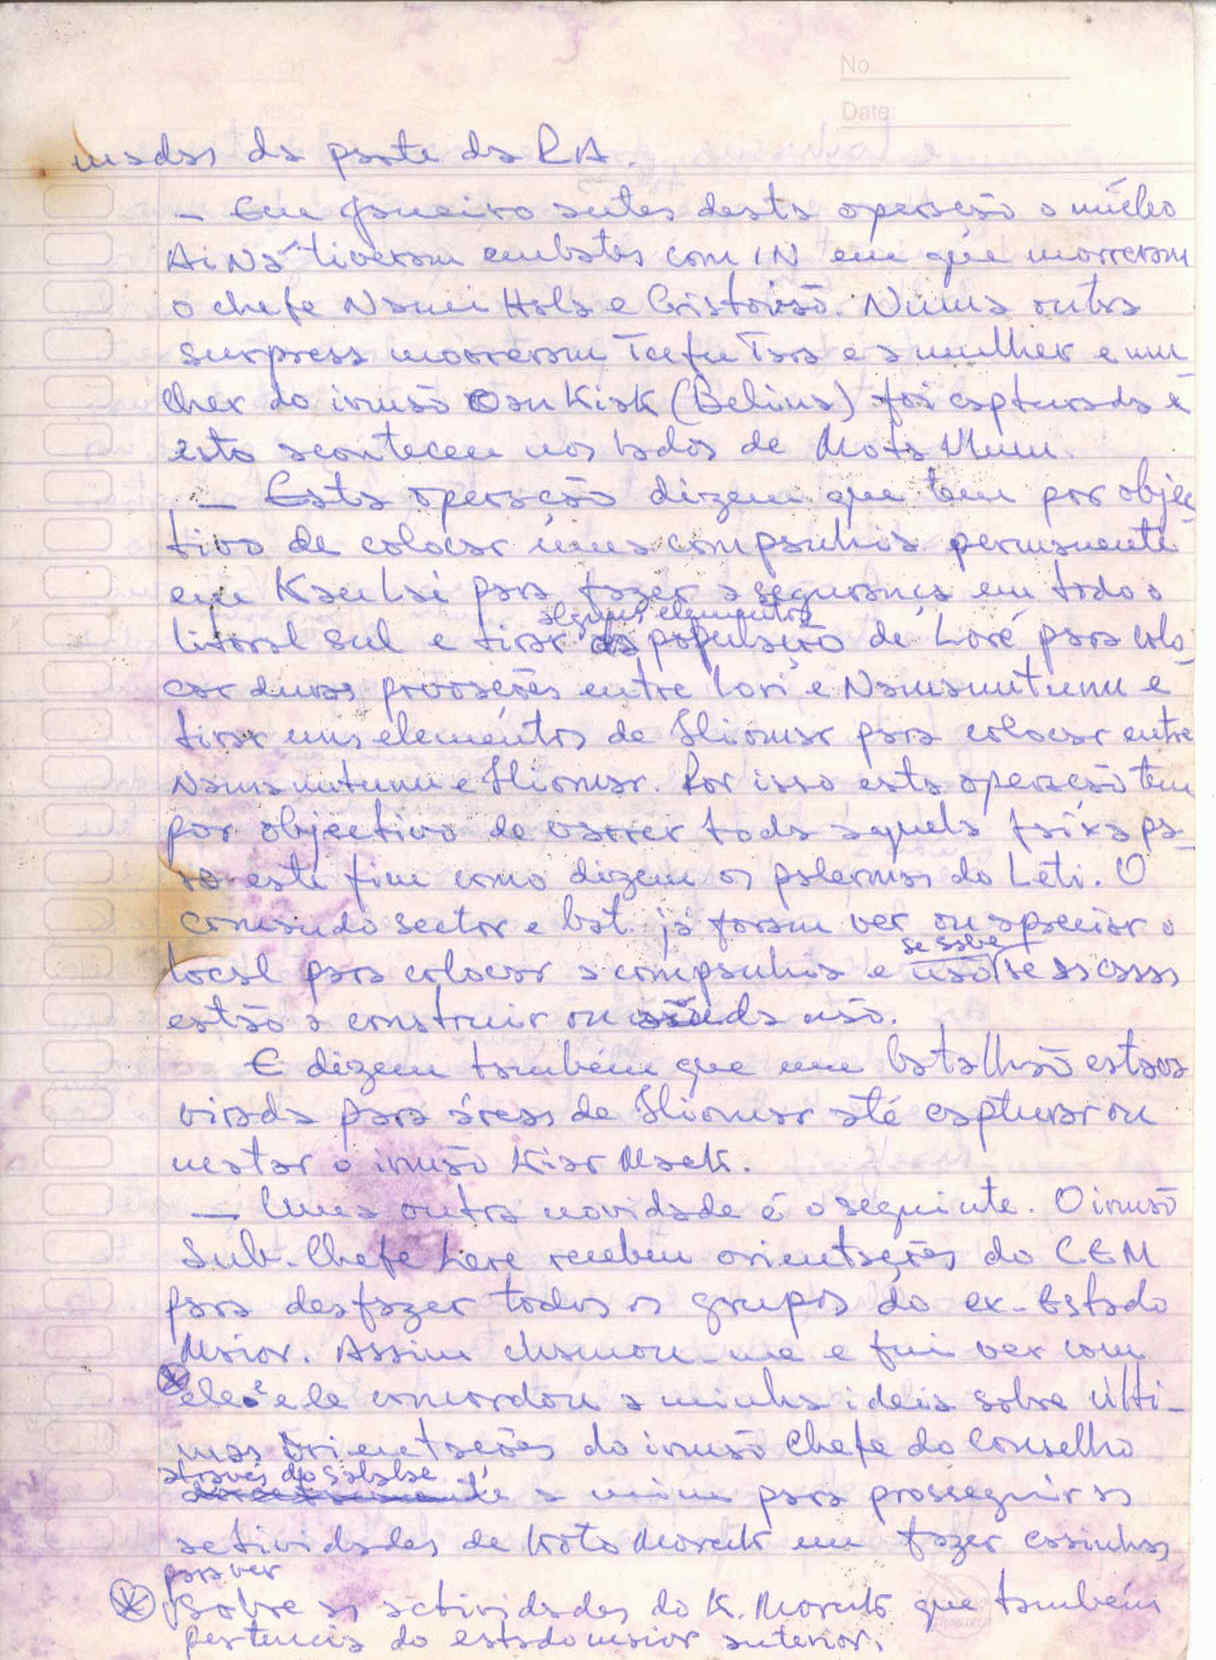 No
Date
madas da parte da RA.
- Em Janeiro antes desta operação o núcleo
AiNá tiveram embates com IN em que morreram
o chefe Namei Hala e Cristóvão. Numa outra
surpresa morreram Tafu Tara e a mulher e mu
lher do irmão Oan Kiak (Belina) foi capturada e
isto aconteceu nos lados de Mota
- Esta operação dizem que tem por objec
tivo de colocar uma companhia permanente
em para fazer a segurança em todo o
alguns elementos
litoral sul e tirar da população de Loré para colo
car duas povoações entre Loré e Namanutumu e
tirar uns elementos de Iliomar para colocar entre
Namanutumu e Iliomar. Por isso esta operação tem
por objectivo de varrer toda aquela faixa pa
ra este fim como dizem os palermas do Leti. O
comando sector e bat. já foram ver ou apreciar o
se sabe
local para colocar a companhia e não se as casas
estão a construir ou ainda não.
E dizem também que um batalhão estava
virada para áreas de Iliomar até capturar ou
matar o irmão Kiar Mack.
- Uma outra novidade é o seguinte. O irmão
Sub-Chefe Lere recebeu orientações do CEM
para desfazer todos os grupos do ex-Estado
Maior. Assim chamou-me e fui ver com
ele e ele concordou a minha ideia sobre últi-
mas orientações do irmão Chefe do Conselho
através do Sabalae
a mim para prosseguir as
actividades de Koto Moruk em fazer casinhas
para ver
sobre as actividades do K. Moruk que também
pertencia do estado maior anterior.